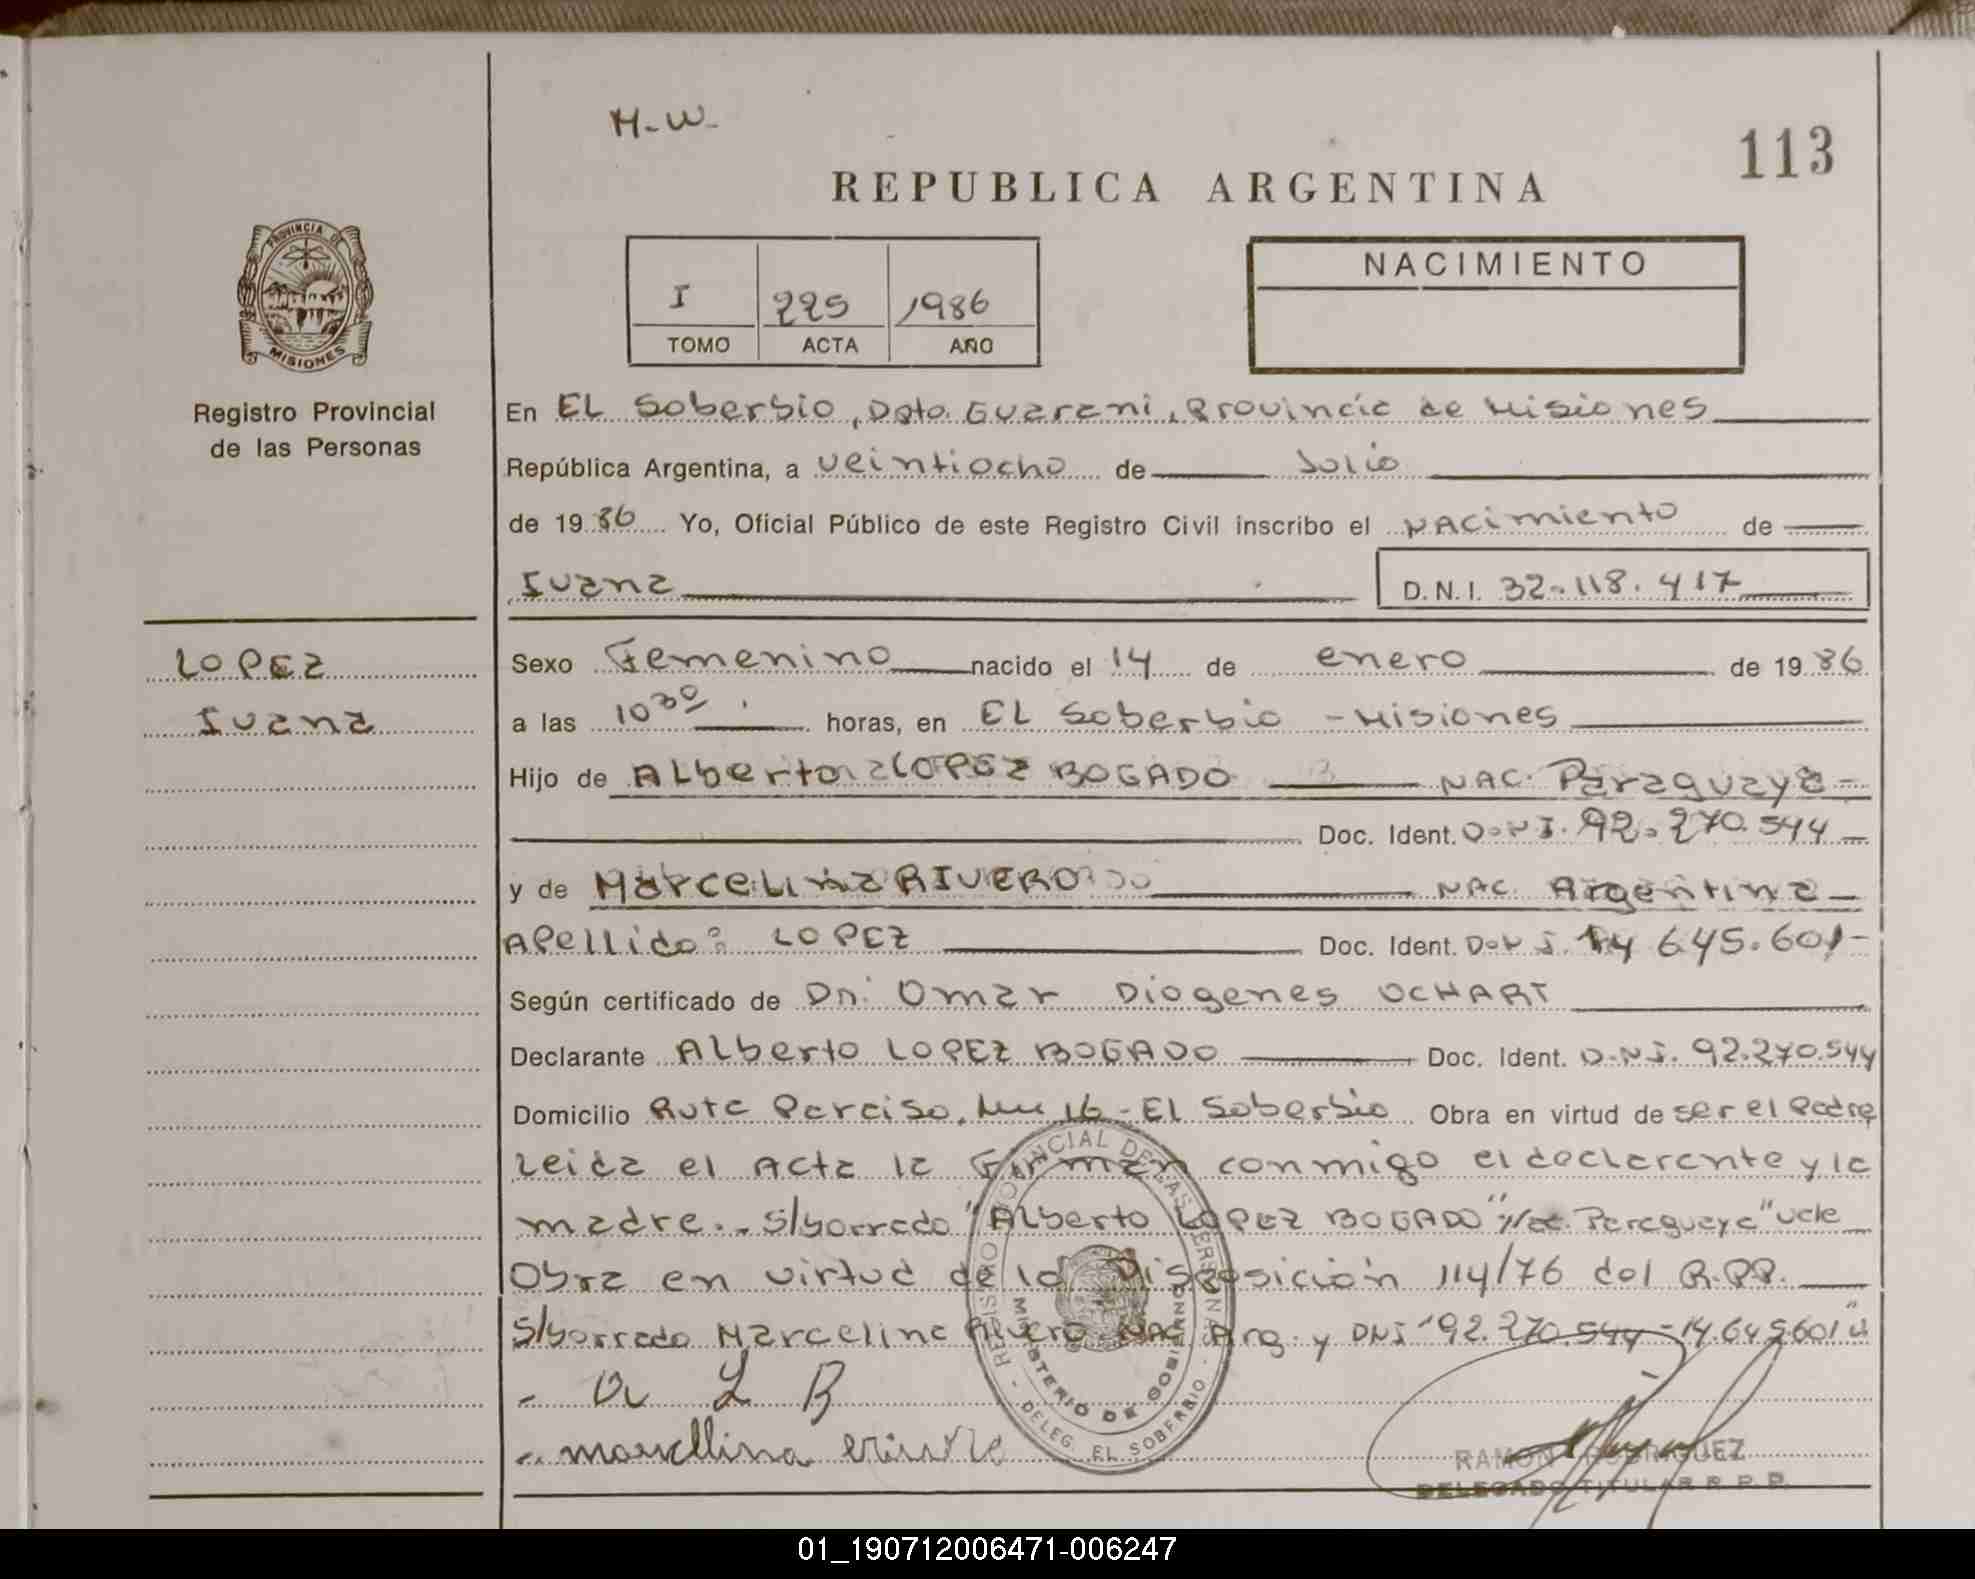 H-W-
113
REPUBLICA ARGENTINA
PROVINCIA DE
MISIONES
Registro Provincial
de las Personas
I 225 1986
TOMO ACTA AÑO
NACIMIENTO
En EL Soberbio, Dpto. Guarani, Provincia de Misiones
República Argentina, a veintiocho de Julio
de 1986 Yo, Oficial Público de este Registro Civil inscribo el NACimiento de
Ivana D.N.I. 32.118.417
LOPEZ
Ivana
Sexo Femenino nacido el 14 de enero de 1986
a las 10 30 horas, en EL Soberbio - Misiones
Hijo de ALberto LOPEZ BOGADO NAC. Paraguaya
Doc. Ident. D.N.I. 92.270.544
y de Marcelina RIVERO NAC. Argentina
Apellido: LOPEZ Doc. Ident. D.N.I. 14 645.601-
Según certificado de Dr. Omar Diogenes OCHART
Declarante ALberto LOPEZ BOGADO Doc. Ident. D.N.I. 92.270.544
Domicilio Ruta Paraiso, km 16 - EL Soberbio Obra en virtud de ser el Padre
Leida el Acta la Firman conmigo el declarante y la
madre.- S/borrado "ALberto LOPEZ BOGADO" "Nac. Paraguaya" vale
Obra en virtud de la Disposición 114/76 del R.P.P.
S/borrado Marcelina Rivero NAC Arg. y DNI "92.270.544 - 14.645.601"
- A L B
REGISTRO PROVINCIAL DE LAS PERSONAS - DELEG. EL SOBERBIO -
MINISTERIO DE GOBIERNO
RAMON RODRIGUEZ
DELEGADO TITULAR R.P.P.
01_190712006471-006247